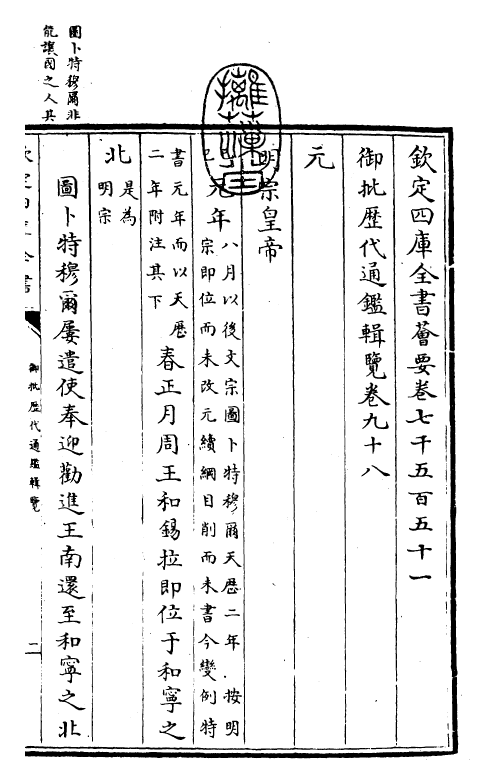 欽定四庫全書薈要卷七千五百五十一
御批歷代通鑑輯覽卷九十八
元
明宗皇帝
己巳元年八月以後文宗圖卜特穆爾天歷二年按明
宗即位而未改元續綱目削而未書今變例特
書元年而以天歷
二年附注其下
春正月周王和錫拉即位于和寧之
北是為
明宗
圖卜特穆爾屢遣使奉迎勸進王南還至和寧之北
圖卜特穆爾非
能讓國之人其
御批歷代通鑑輯覽